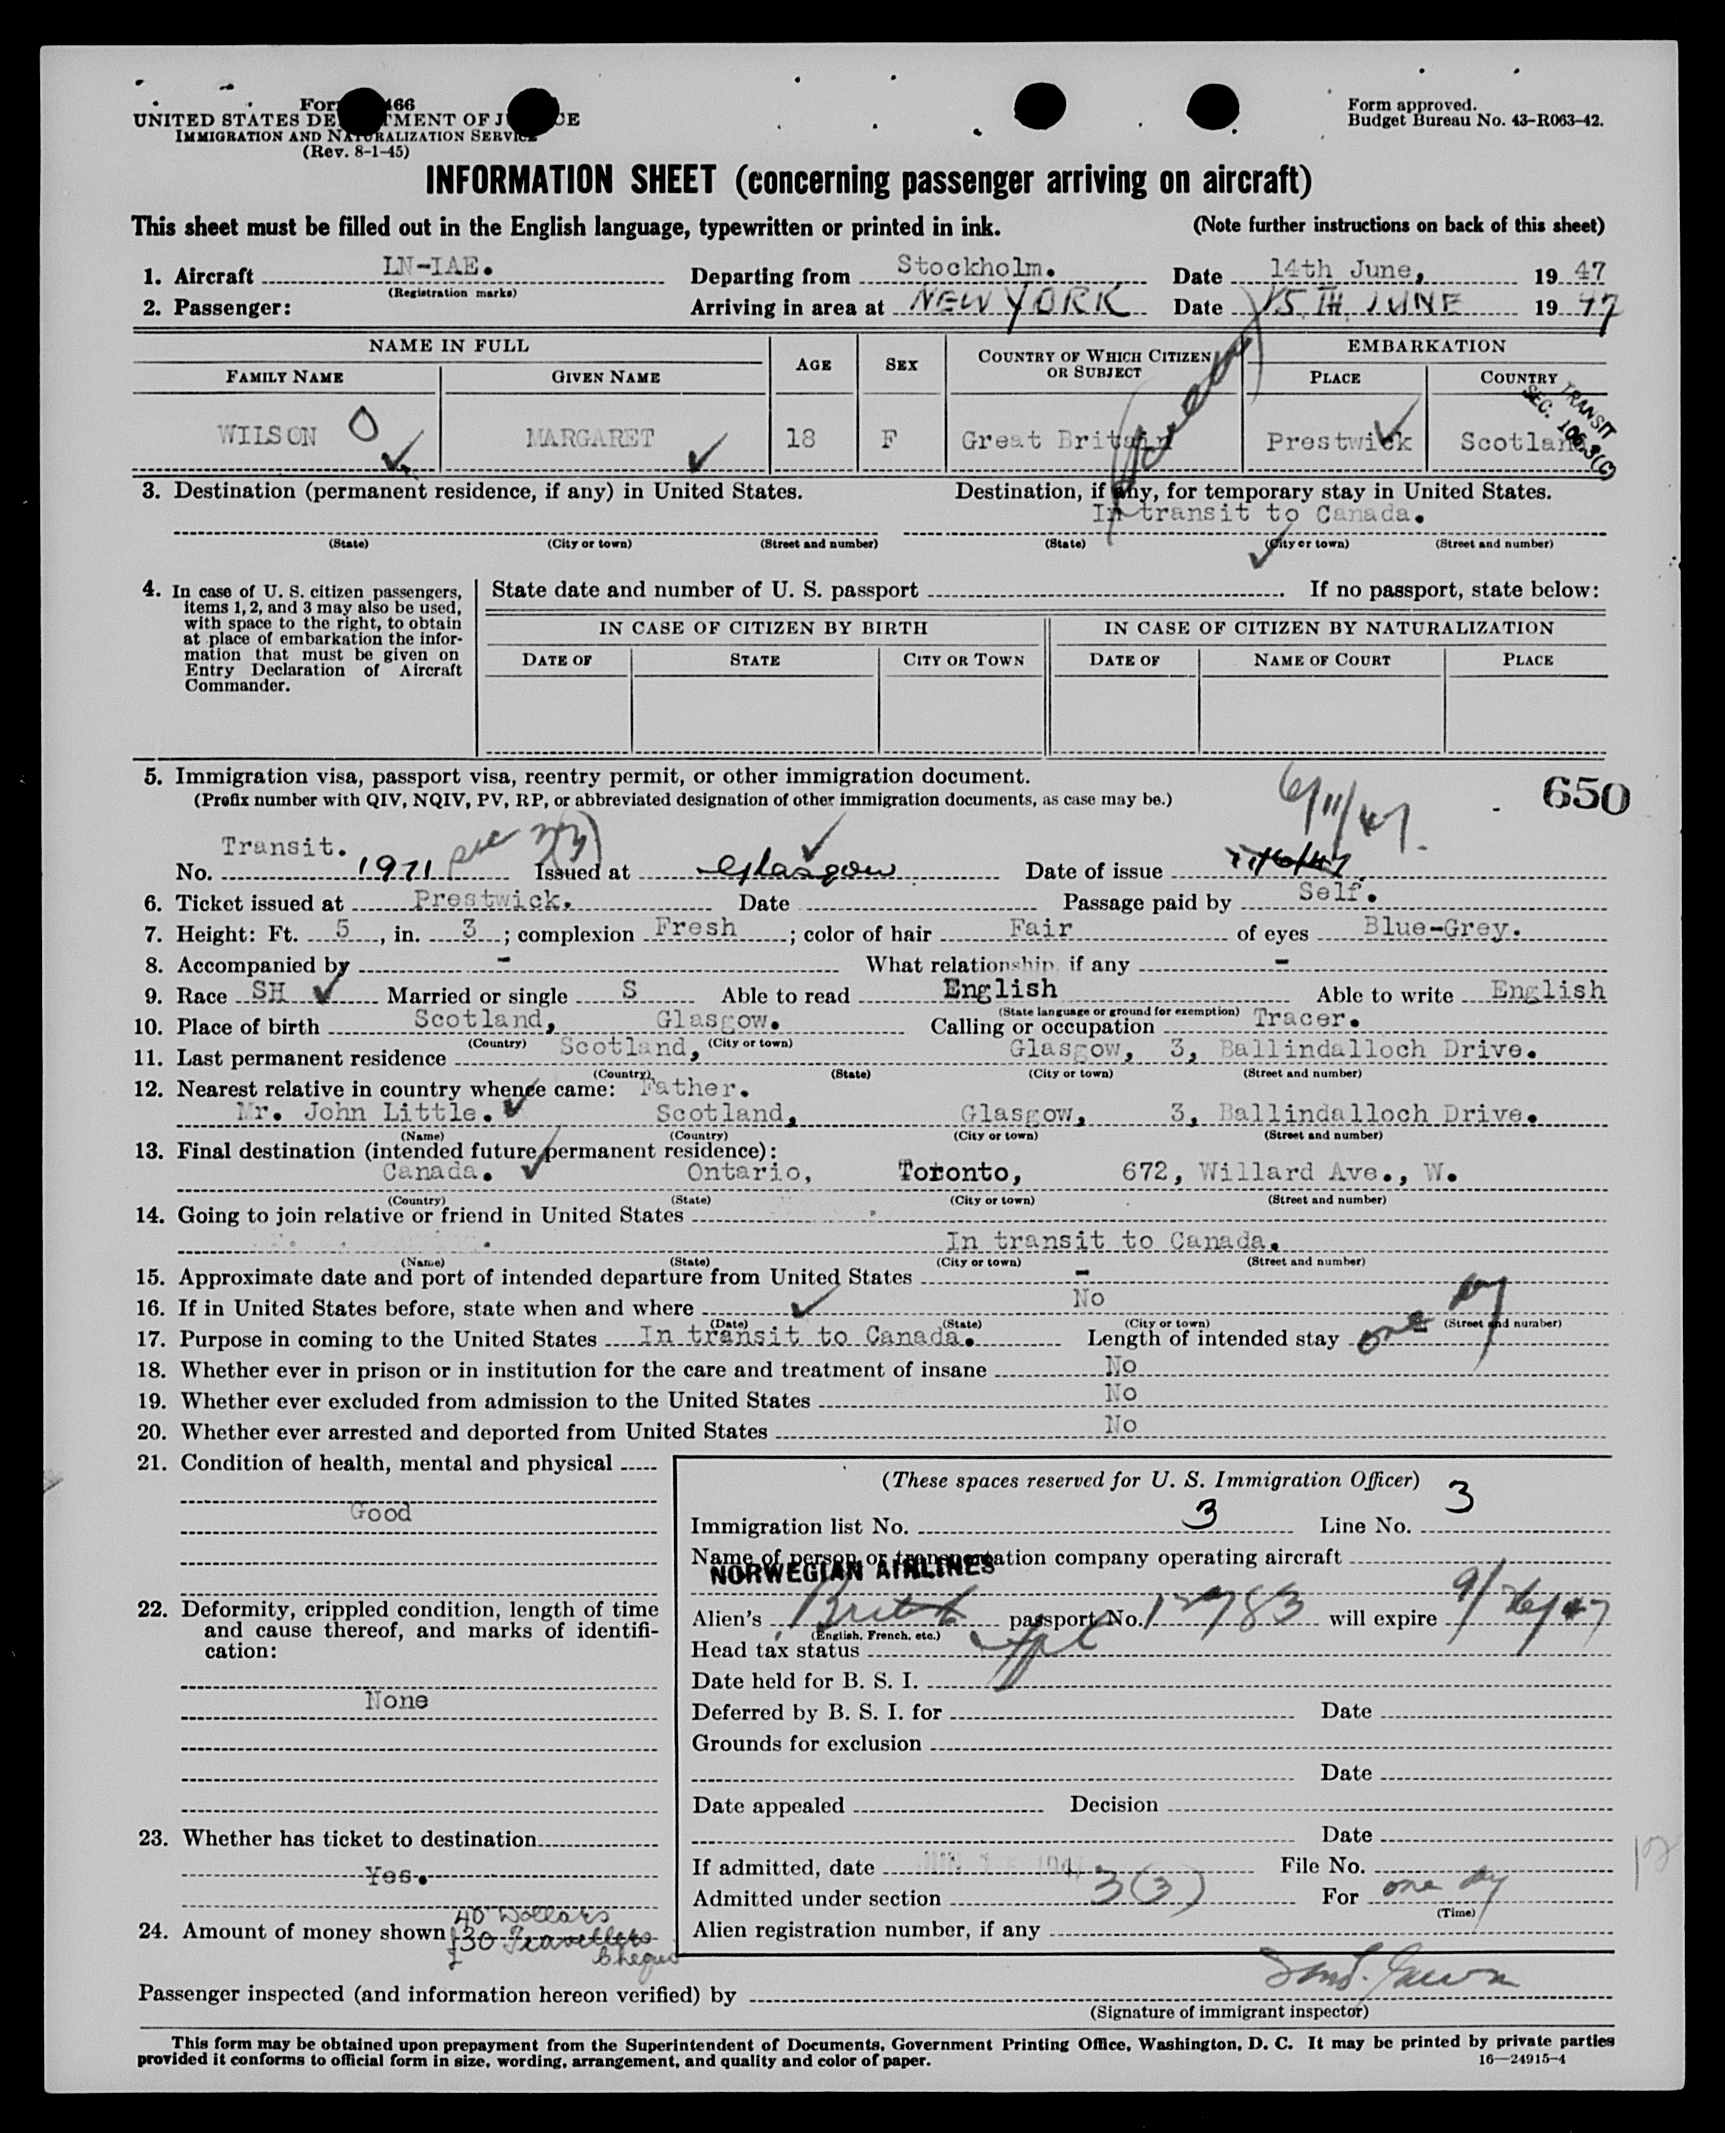 For 466
UNITED STATES DE MENT OF J CE
IMMIGRATION AND NATURALIZATION SERVICE
(Rev. 8-1-45)
Form approved.
Budget Bureau No. 43-R063-42.
INFORMATION SHEET (concerning passenger arriving on aircraft)
This sheet must be filled out in the English language, typewritten or printed in ink. (Note further instructions on back of this sheet)
1. Aircraft LN-IAE. Departing from Stockholm. Date 14th June, 19 47
(Registration marks)
2. Passenger: Arriving in area at NEW YORK Date 15TH JUNE 19 47
NAME IN FULL AGE SEX COUNTRY OF WHICH CITIZEN OR SUBJECT EMBARKATION
FAMILY NAME GIVEN NAME PLACE COUNTRY
WILSON O MARGARET 18 F Great Britain Prestwick Scotland
TRANSIT
SEC. 106.3(C)
3. Destination (permanent residence, if any) in United States. Destination, if any, for temporary stay in United States.
In transit to Canada.
(State) (City or town) (Street and number) (State) (City or town) (Street and number)
4. In case of U. S. citizen passengers, items 1, 2, and 3 may also be used, with space to the right, to obtain at place of embarkation the information that must be given on Entry Declaration of Aircraft Commander.
State date and number of U. S. passport If no passport, state below:
IN CASE OF CITIZEN BY BIRTH IN CASE OF CITIZEN BY NATURALIZATION
DATE OF STATE CITY OR TOWN DATE OF NAME OF COURT PLACE
5. Immigration visa, passport visa, reentry permit, or other immigration document.
(Prefix number with QIV, NQIV, PV, RP, or abbreviated designation of other immigration documents, as case may be.)
6/11/47. 650
Transit.
No. 1971 Issued at Glasgow Date of issue 11/6/47
6. Ticket issued at Prestwick. Date Passage paid by Self.
7. Height: Ft. 5, in. 3; complexion Fresh; color of hair Fair of eyes Blue-Grey.
8. Accompanied by - What relationship, if any -
9. Race SH Married or single S Able to read English Able to write English
(State language or ground for exemption)
10. Place of birth Scotland, Glasgow. Calling or occupation Tracer.
(Country) (City or town)
11. Last permanent residence Scotland, Glasgow, 3, Ballindalloch Drive.
(Country) (State) (City or town) (Street and number)
12. Nearest relative in country whence came: Father.
Mr. John Little. Scotland, Glasgow, 3, Ballindalloch Drive.
(Name) (Country) (City or town) (Street and number)
13. Final destination (intended future permanent residence):
Canada. Ontario, Toronto, 672, Willard Ave., W.
(Country) (State) (City or town) (Street and number)
14. Going to join relative or friend in United States
In transit to Canada.
(Name) (State) (City or town) (Street and number)
15. Approximate date and port of intended departure from United States -
16. If in United States before, state when and where No
(Date) (State) (City or town) (Street and number)
17. Purpose in coming to the United States In transit to Canada. Length of intended stay one day
18. Whether ever in prison or in institution for the care and treatment of insane No
19. Whether ever excluded from admission to the United States No
20. Whether ever arrested and deported from United States No
21. Condition of health, mental and physical
Good
22. Deformity, crippled condition, length of time and cause thereof, and marks of identification:
None
23. Whether has ticket to destination
Yes.
24. Amount of money shown 40 Dollars
£30 Travellers
Cheques
(These spaces reserved for U. S. Immigration Officer)
Immigration list No. 3 Line No. 3
Name of person or transportation company operating aircraft
NORWEGIAN AIRLINES
Alien's British passport No. 12783 will expire 9/26/47
(English, French, etc.)
Head tax status
Date held for B. S. I.
Deferred by B. S. I. for Date
Grounds for exclusion
Date
Date appealed Decision
Date
If admitted, date File No.
Admitted under section 3(3) For one day
(Time)
Alien registration number, if any
Passenger inspected (and information hereon verified) by
(Signature of immigrant inspector)
This form may be obtained upon prepayment from the Superintendent of Documents, Government Printing Office, Washington, D. C. It may be printed by private parties
provided it conforms to official form in size, wording, arrangement, and quality and color of paper. 16—24915-4